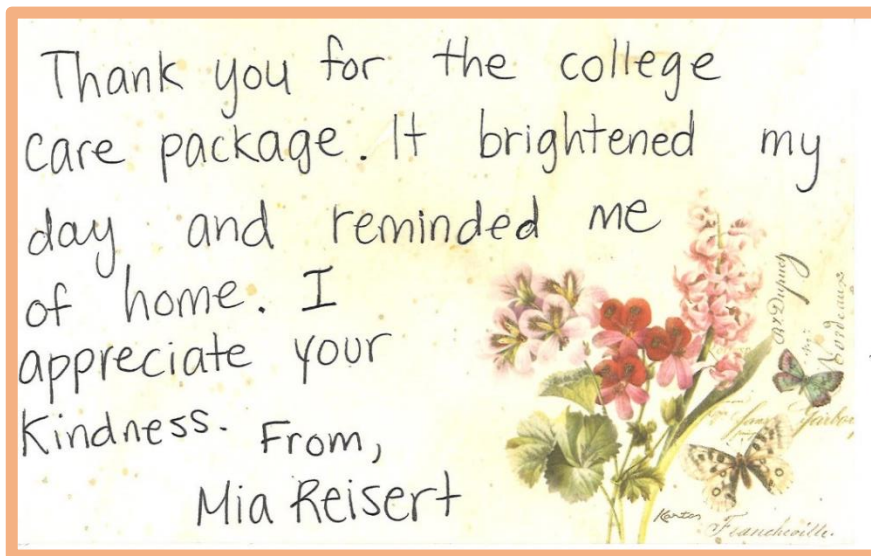 Thank you for the college
care package. It brightened my
day and reminded me
of home. I
appreciate your
kindness. From,
Mia Reisert
Francheville.